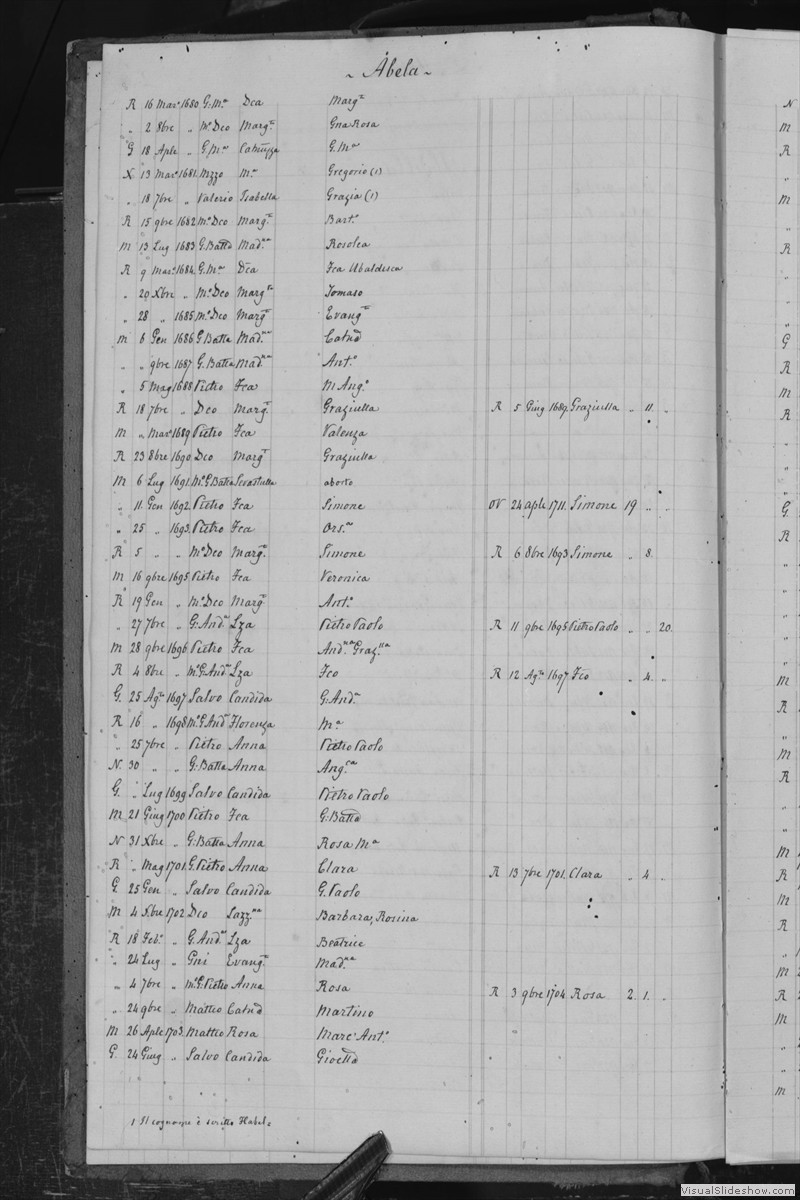 ~ Abela ~
R 16 Mar° 1680 G. Mª Dca Margta
„ 2 8bre „ M° Dco Margta Gna Rosa
G 18 Aple „ G. Mª Catnuzza G. Mª
X 13 Mar° 1681 Mzzo Mª Gregorio (1)
„ 18 7bre „ Valerio Isabella Grazia (1)
R 15 9bre 1682 M° Dco Margta Bart°
M 13 Lug 1683 G. Batta Madna Rosolea
R 9 Mar° 1684 G. Mª Dca Fca Ubaldesca
„ 20 Xbre „ M° Dco Margta Tomaso
„ 28 „ 1685 M° Dco Margta Evangta
M 6 Gen 1686 G Batta Madna Catnd
„ „ 9bre 1687 G. Batta Madna Ant°
„ 5 Mag 1688 Pietro Fca M Ang°
R 18 7bre „ Dco Margta Graziulla R 5 Giug 1689 Graziulla „ 11. „
M „ Mar° 1689 Pietro Fca Valenza
R 23 8bre 1690 Dco Margta Graziulla
M 6 Lug 1691 M° G. Batta aborto
„ 11 Gen 1692 Pietro Fca Simone OV 24 aple 1711. Simone 19 „ „
„ 25 „ 1693 Pietro Fca Orsla
R 5 „ „ M° Dco Margta Simone R 6 8bre 1693 Simone „ 8.
M 16 9bre 1695 Pietro Fca Veronica
R 19 Gen „ M° Dco Margta Ant°
„ 27 7bre „ G: Andª Lza Pietro Paolo R 11 9bre 1695 Pietro Paolo „ „ 20.
M 28 9bre 1696 Pietro Fca Andna Grazlla
R 4 8bre „ M° G. Andª Lza Fco R 12 Ag° 1697 Fco „ 4. „
G. 25 Ag° 1697 Salvo Candida G: Andª
R 16 „ 1698 M° G. Andª Florenza Mª
„ 25 7bre „ Pietro Anna Pietro Paolo
N. 30 „ „ G: Batta Anna Angca
G. „ Lug 1699 Salvo Candida Pietro Paolo
M 21 Giug 1700 Pietro Fca G: Batta
N 31 Xbre „ G: Batta Anna Rosa Mª
R „ Mag 1701. G. Pietro Anna Clara R 13 7bre 1701. Clara „ 4. „
G. 25 Gen „ Salvo Candida G. Paolo
M 4 Xbre 1702 Dco Lazzna Barbara, Rosina
R 18 Feb° „ G. Andª Lza Beatrice
„ 24 Lug „ Gni Evangta Madna
„ 4 7bre „ M° G. Pietro Anna Rosa R 3 9bre 1704 Rosa 2. 1. „
„ 24 9bre „ Matteo Catnd Martino
M 26 Aple 1703. Matteo Rosa Marc' Ant°
G. 24 Giug „ Salvo Candida Gioetta
1 Il cognome è scritto Habela
N
M
R
„
M
„
R
„
„
„
G
R
M
R
G.
R
M
R
„
M
R
M
R
M
R
M
R
M
„
M
VisualSlideshow.com